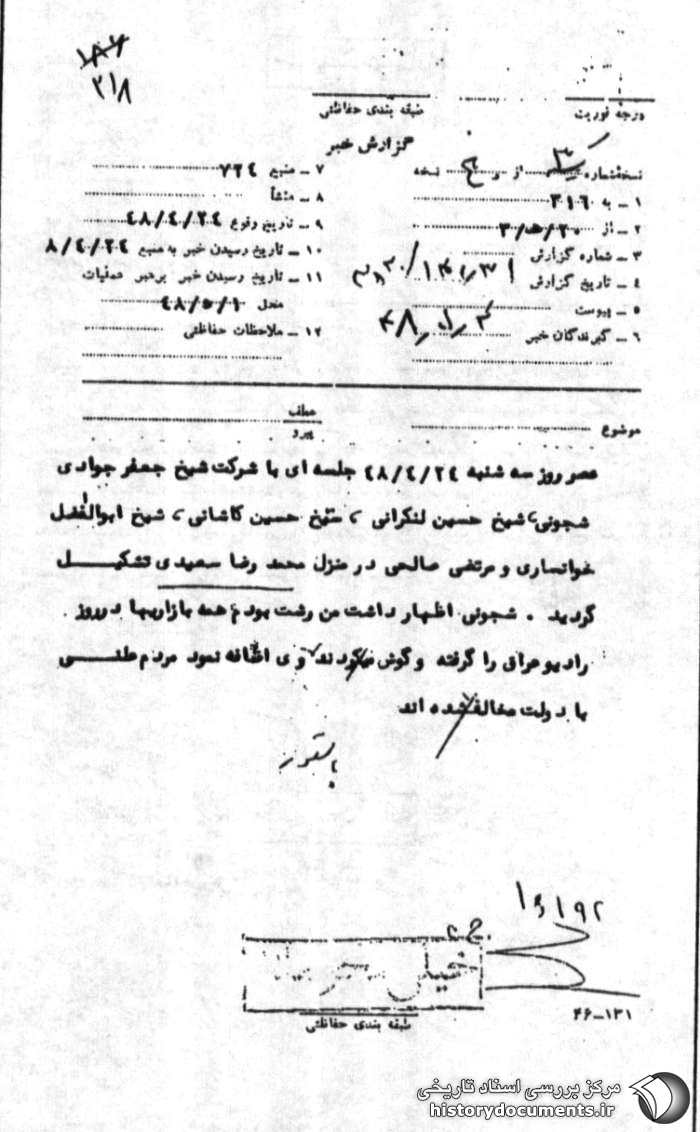 ۱۸۶
۲۱۸
درجه فوریت
طبقه بندی حفاظتی
گزارش خبر
نسخه شماره ۳ از نسخه
۱ ـ به ۳۱۶
۲ ـ از ۲۰/ه۳۰
۳ ـ شماره گزارش
۴ ـ تاریخ گزارش
۵ ـ پیوست
۶ ـ گیرندگان خبر
۷ ـ منبع ۷۳۴
۸ ـ منشأ
۹ ـ تاریخ وقوع ۴۸/۴/۲۴
۱۰ ـ تاریخ رسیدن خبر به منبع ۸/۴/۲۴
۱۱ ـ تاریخ رسیدن خبر برهبر عملیات
محل ۴۸/۵/۱
۱۲ ـ ملاحظات حفاظتی
موضوع
عطف
پیرو
عصر روز سه شنبه ۴۸/۴/۲۴ جلسه ای با شرکت شیخ جعفر جوادی
شجونی، شیخ حسین لنکرانی، شیخ حسین کاشانی، شیخ ابوالفضل
خوانساری و مرتضی صالحی در منزل محمد رضا سعیدی تشکیل
گردید . شجونی اظهار داشت من رشت بودم همه بازاریها درروز
رادیو عراق را گرفته و گوش میکردند وی اضافه نمود مردم علنی
با دولت مخالف شده اند
طبقه بندی حفاظتی
۴۶-۱۳۱
مرکز بررسی اسناد تاریخی
historydocuments.ir